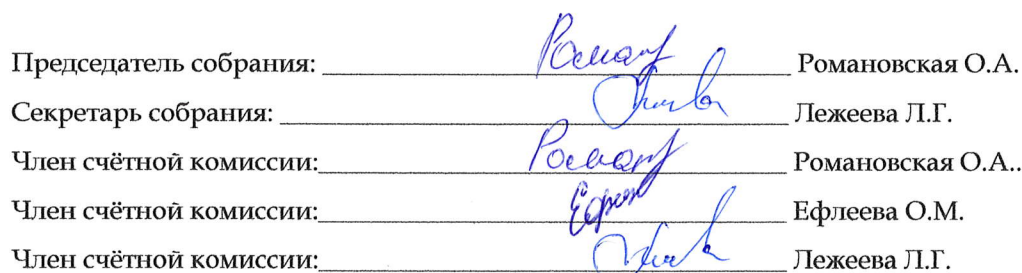 Председатель собрания: Романовская О.А.
Секретарь собрания: Лежеева Л.Г.
Член счётной комиссии: Романовская О.А..
Член счётной комиссии: Ефлеева О.М.
Член счётной комиссии: Лежеева Л.Г.